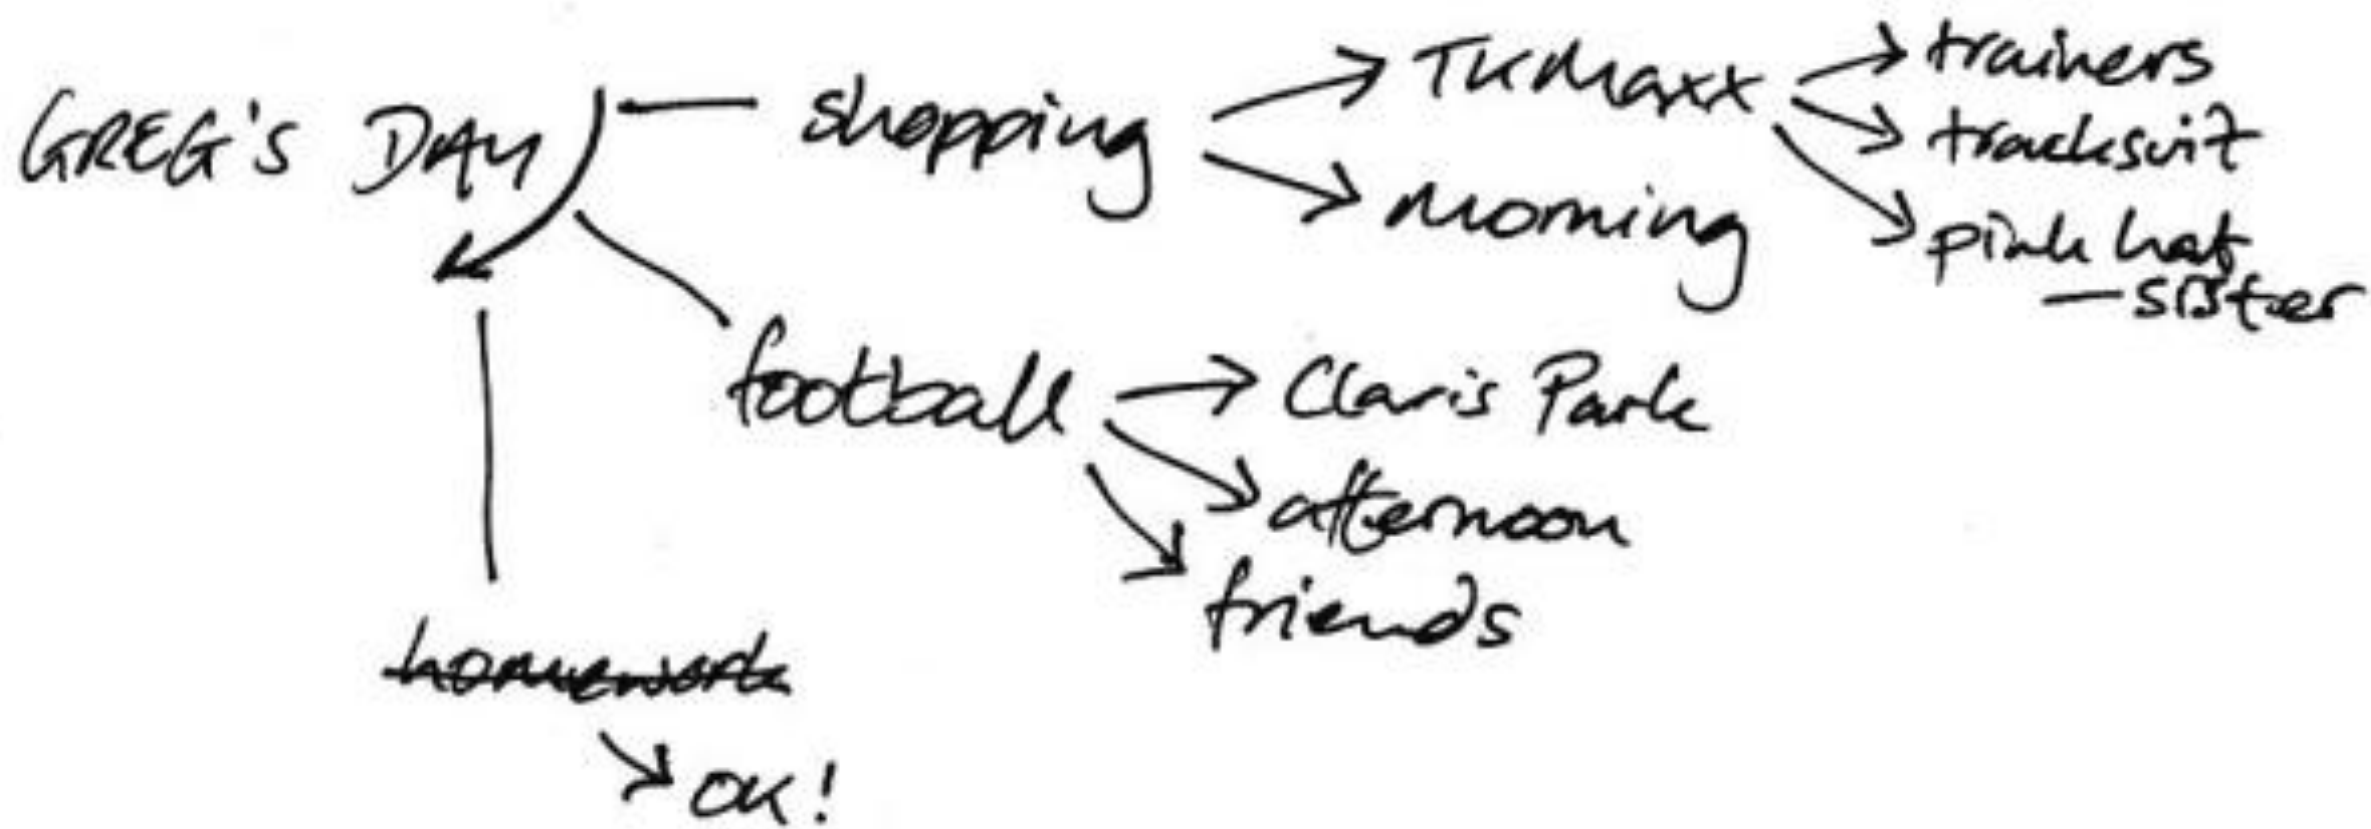 GREG'S DAY
shopping
TKMaxx
trainers
tracksuit
pink hat
— sister
morning
football
Claris Park
afternoon
friends
homework
OK!